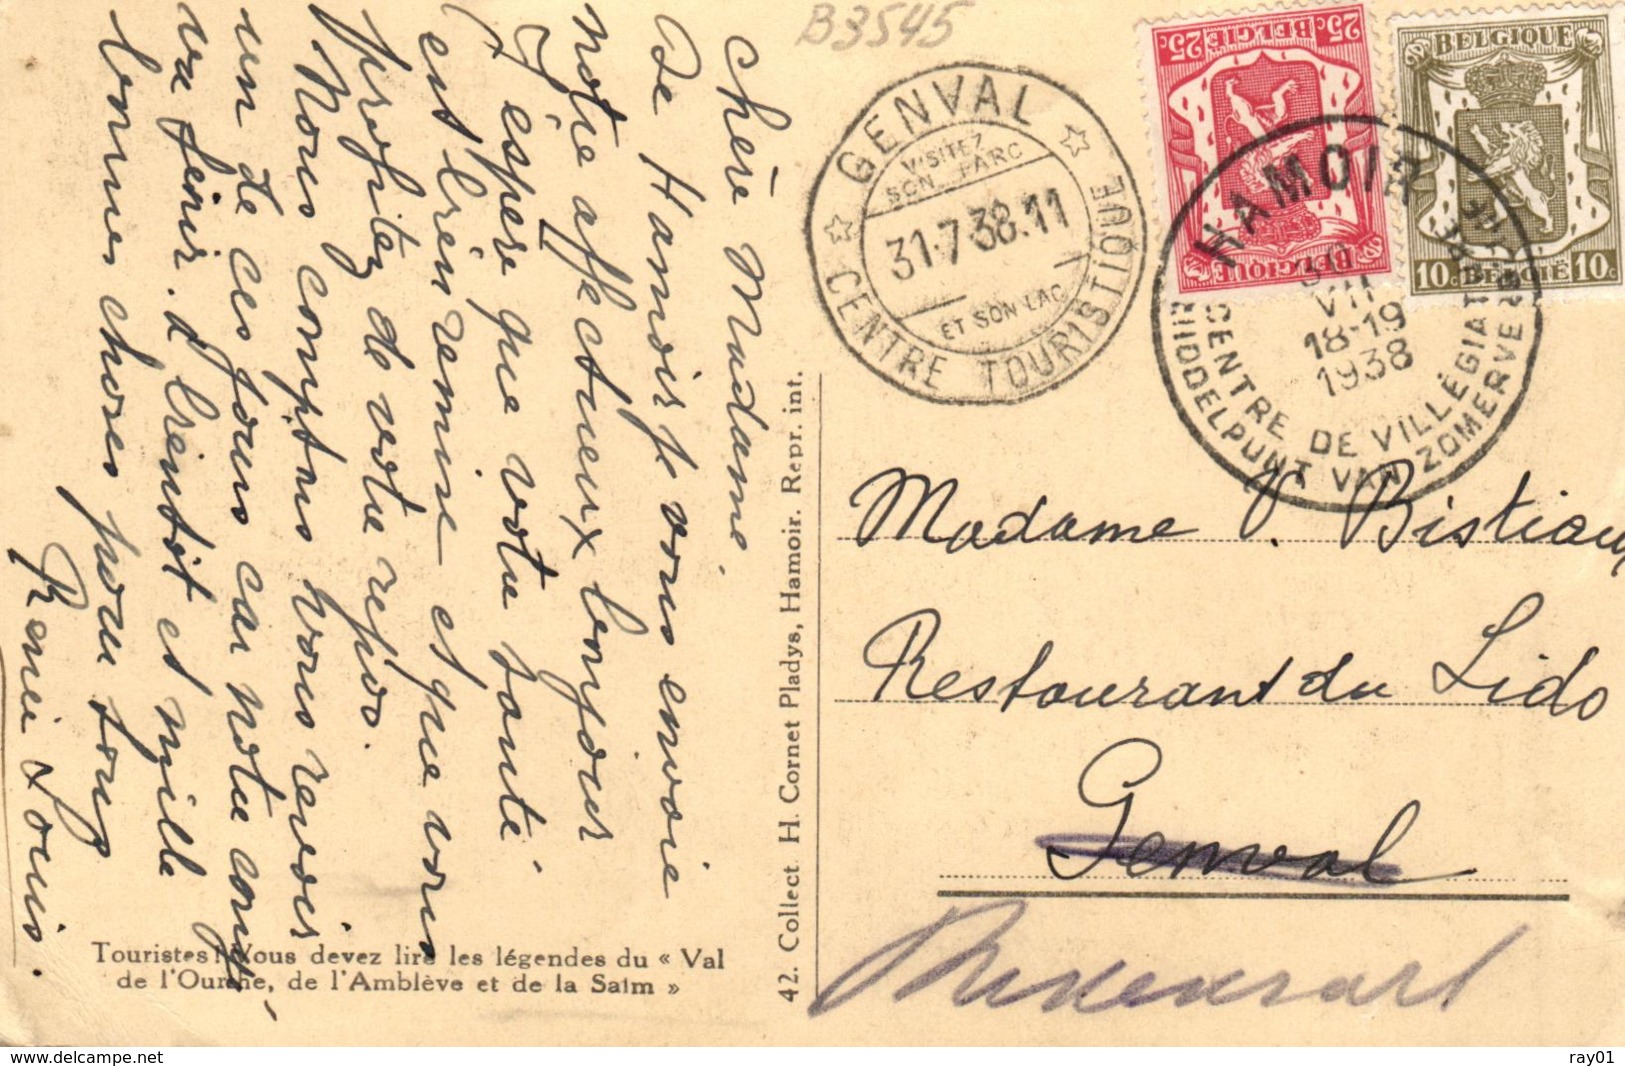 B3545
chère Madame.
De Hamoir je vous envoie
notre affectueux bonjour
J'éspère que votre santé
est bien remise et que vous
profitez de votre repos.
Nous comptons vous revoir
un de ces jours car notre congé
va finir. à bientôt et mille
bonnes choses pour tous
René & Louis.
Touristes! Vous devez lire les légendes du « Val
de l'Ourthe, de l'Amblève et de la Salm »
42. Collect. H. Cornet Pladys, Hamoir. Repr. int.
GENVAL
VISITEZ
SON PARC
31·7·38·11
ET SON LAC
CENTRE TOURISTIQUE
25c BELGIË 25c
BELGIQUE
BELGIQUE
10c BELGIË 10c
HAMOIR
30
VII
18-19
1938
CENTRE DE VILLÉGIAT
MIDDELPUNT VAN ZOMERVER
Madame P. Bistiaux
Restaurant du Lido
Genval
Rixensart
www.delcampe.net
ray01